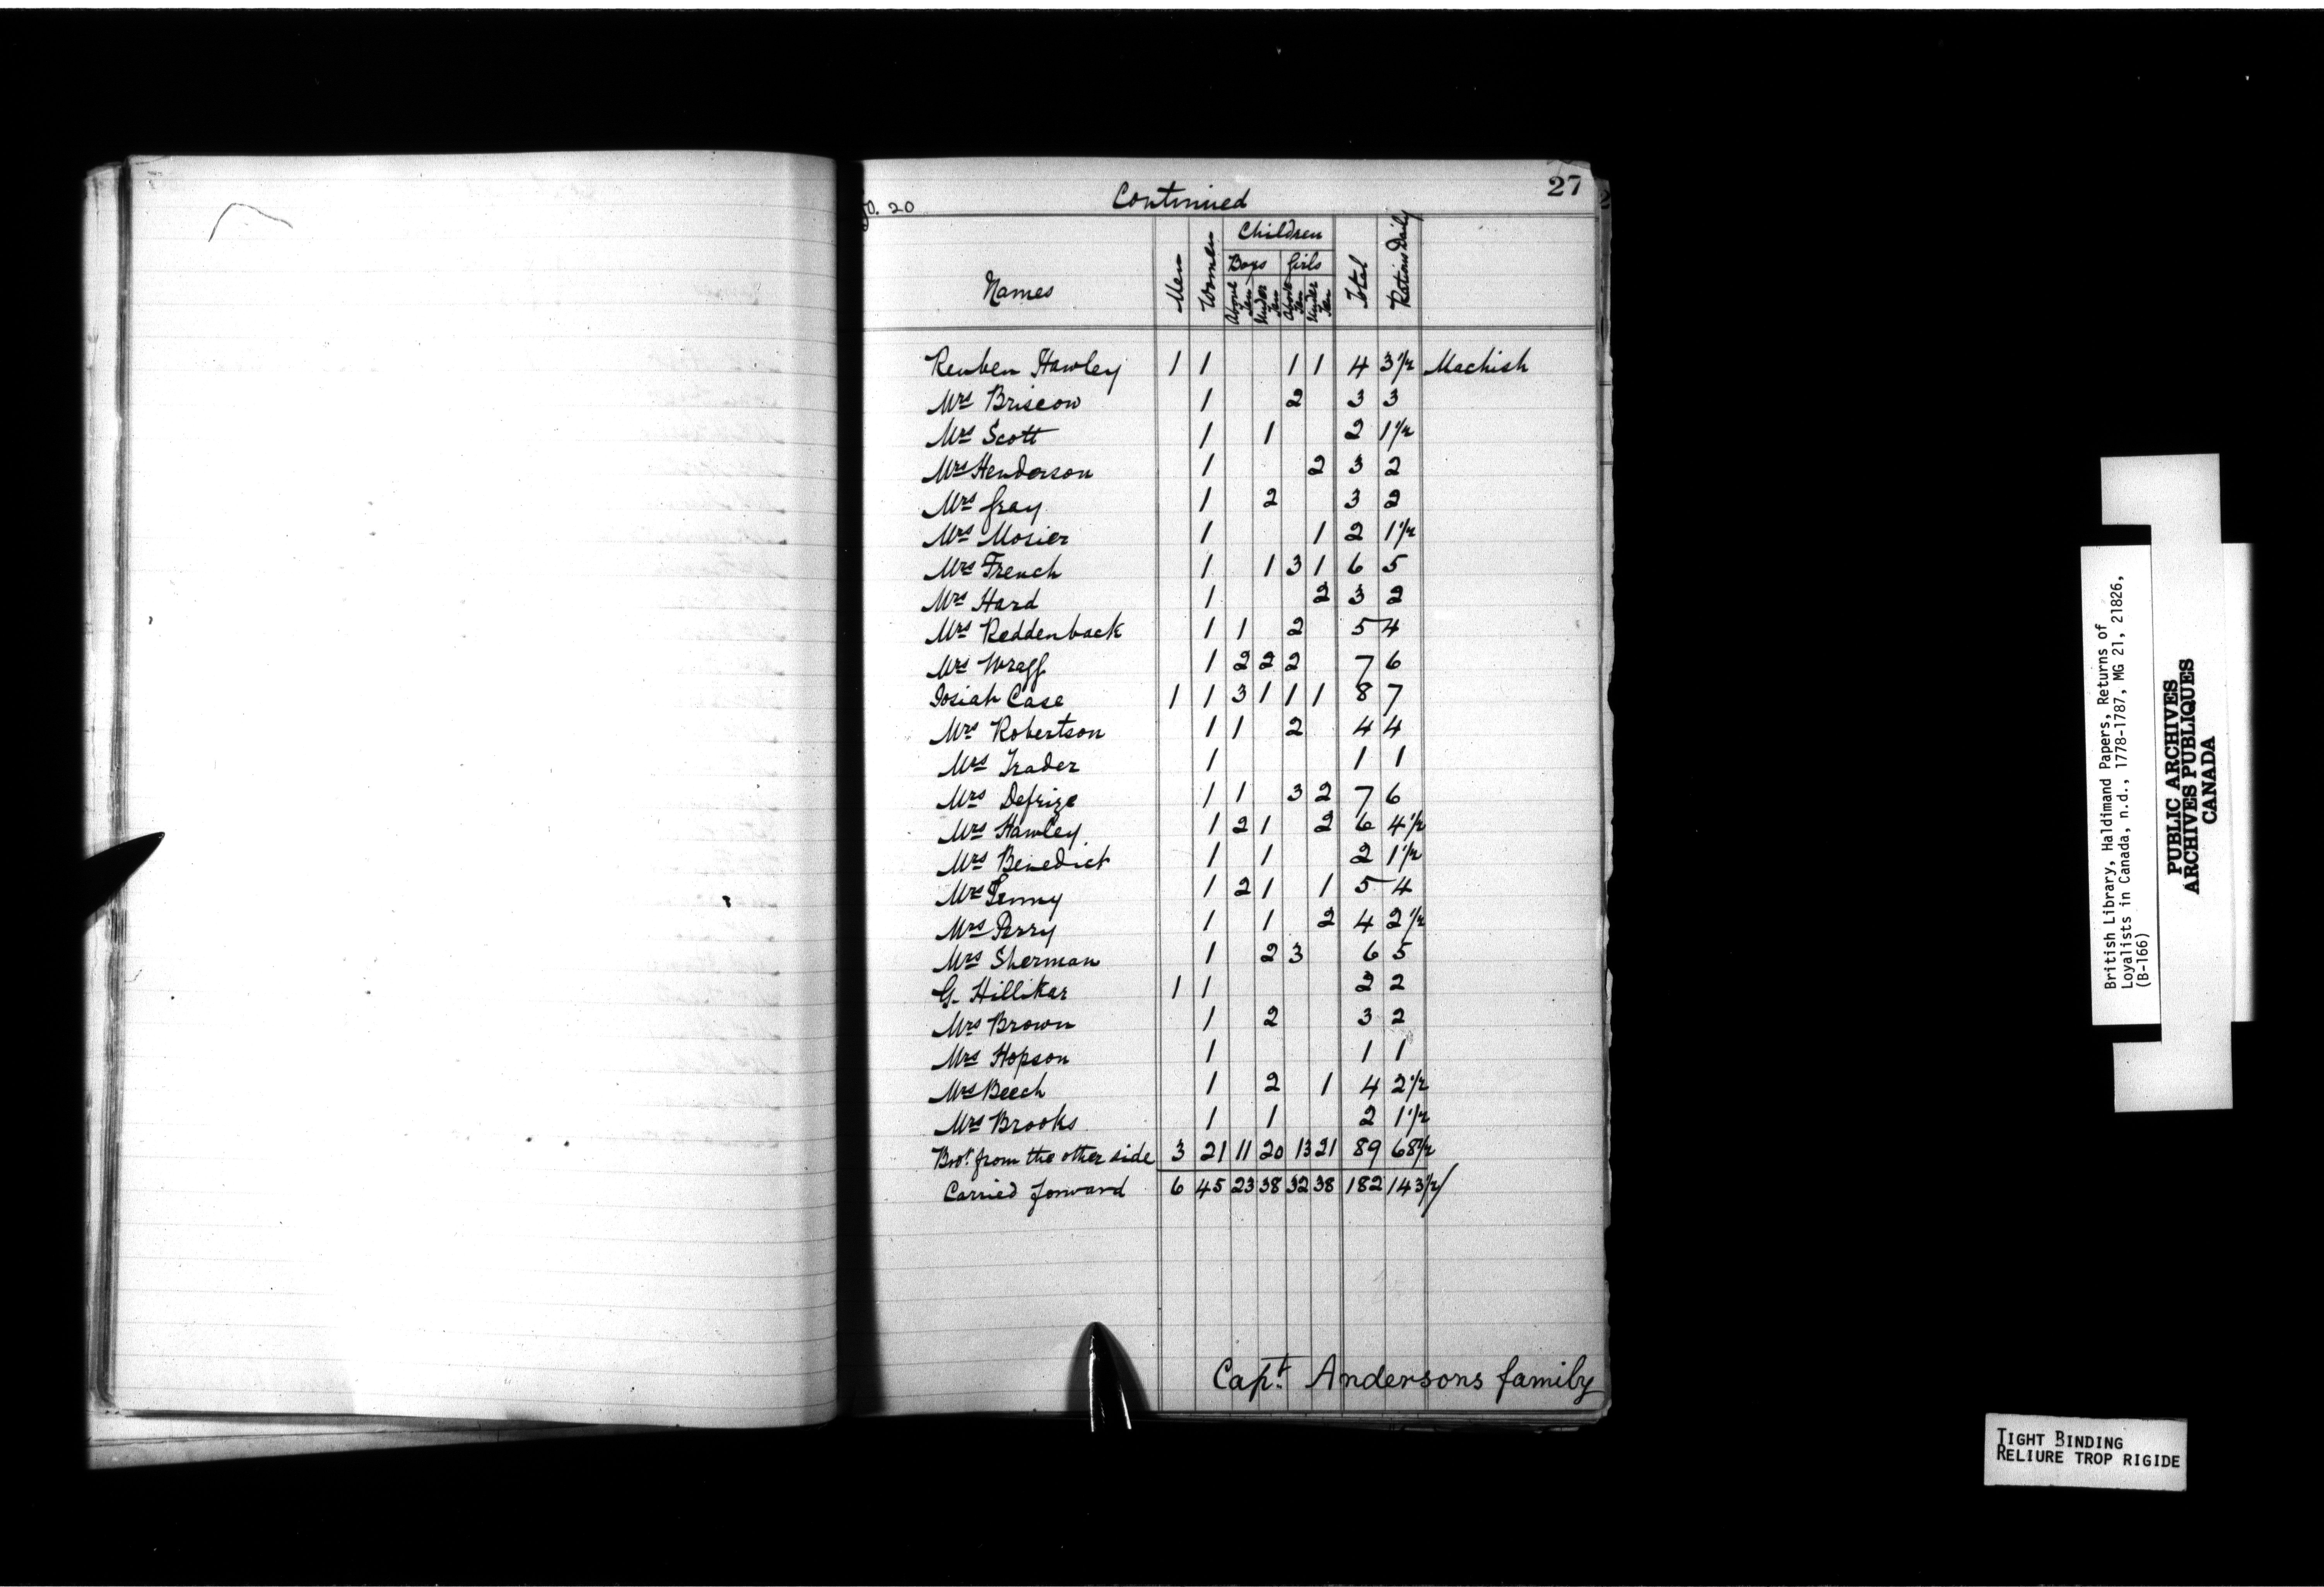 27
fo. 20
Continued
Names Men Women Children Total Rations Daily
Boys Girls
Above Ten Under Ten Above Ten Under Ten
Reuben Hawley 1 1 1 1 4 3 1/2 Machish
Mrs Briscow 1 2 3 3
Mrs Scott 1 1 2 1 1/2
Mrs Henderson 1 2 3 2
Mrs Gray 1 2 3 2
Mrs Mosier 1 1 2 1 1/2
Mrs French 1 1 3 1 6 5
Mrs Hard 1 2 3 2
Mrs Reddenback 1 1 2 5 4
Mrs Wragg 1 2 2 2 7 6
Josiah Case 1 1 3 1 1 1 8 7
Mrs Robertson 1 1 2 4 4
Mrs Trader 1 1 1
Mrs Defrize 1 1 3 2 7 6
Mrs Hawley 1 2 1 2 6 4 1/2
Mrs Benedict 1 1 2 1 1/2
Mrs 1 2 1 1 5 4
Mrs Perry 1 1 2 4 2 1/2
Mrs Sherman 1 2 3 6 5
G. Hilliker 1 1 2 2
Mrs Brown 1 2 3 2
Mrs Hopson 1 1 1
Mrs Beech 1 2 1 4 2 1/2
Mrs Brooks 1 1 2 1 1/2
Brot. from the other side 3 21 11 20 13 21 89 68 1/2
Carried forward 6 45 23 38 32 38 182 143 1/2/
Capt. Andersons family
British Library, Haldimand Papers, Returns of
Loyalists in Canada, n.d., 1778-1787, MG 21, 21826,
(B-166)
PUBLIC ARCHIVES
ARCHIVES PUBLIQUES
CANADA
TIGHT BINDING
RELIURE TROP RIGIDE